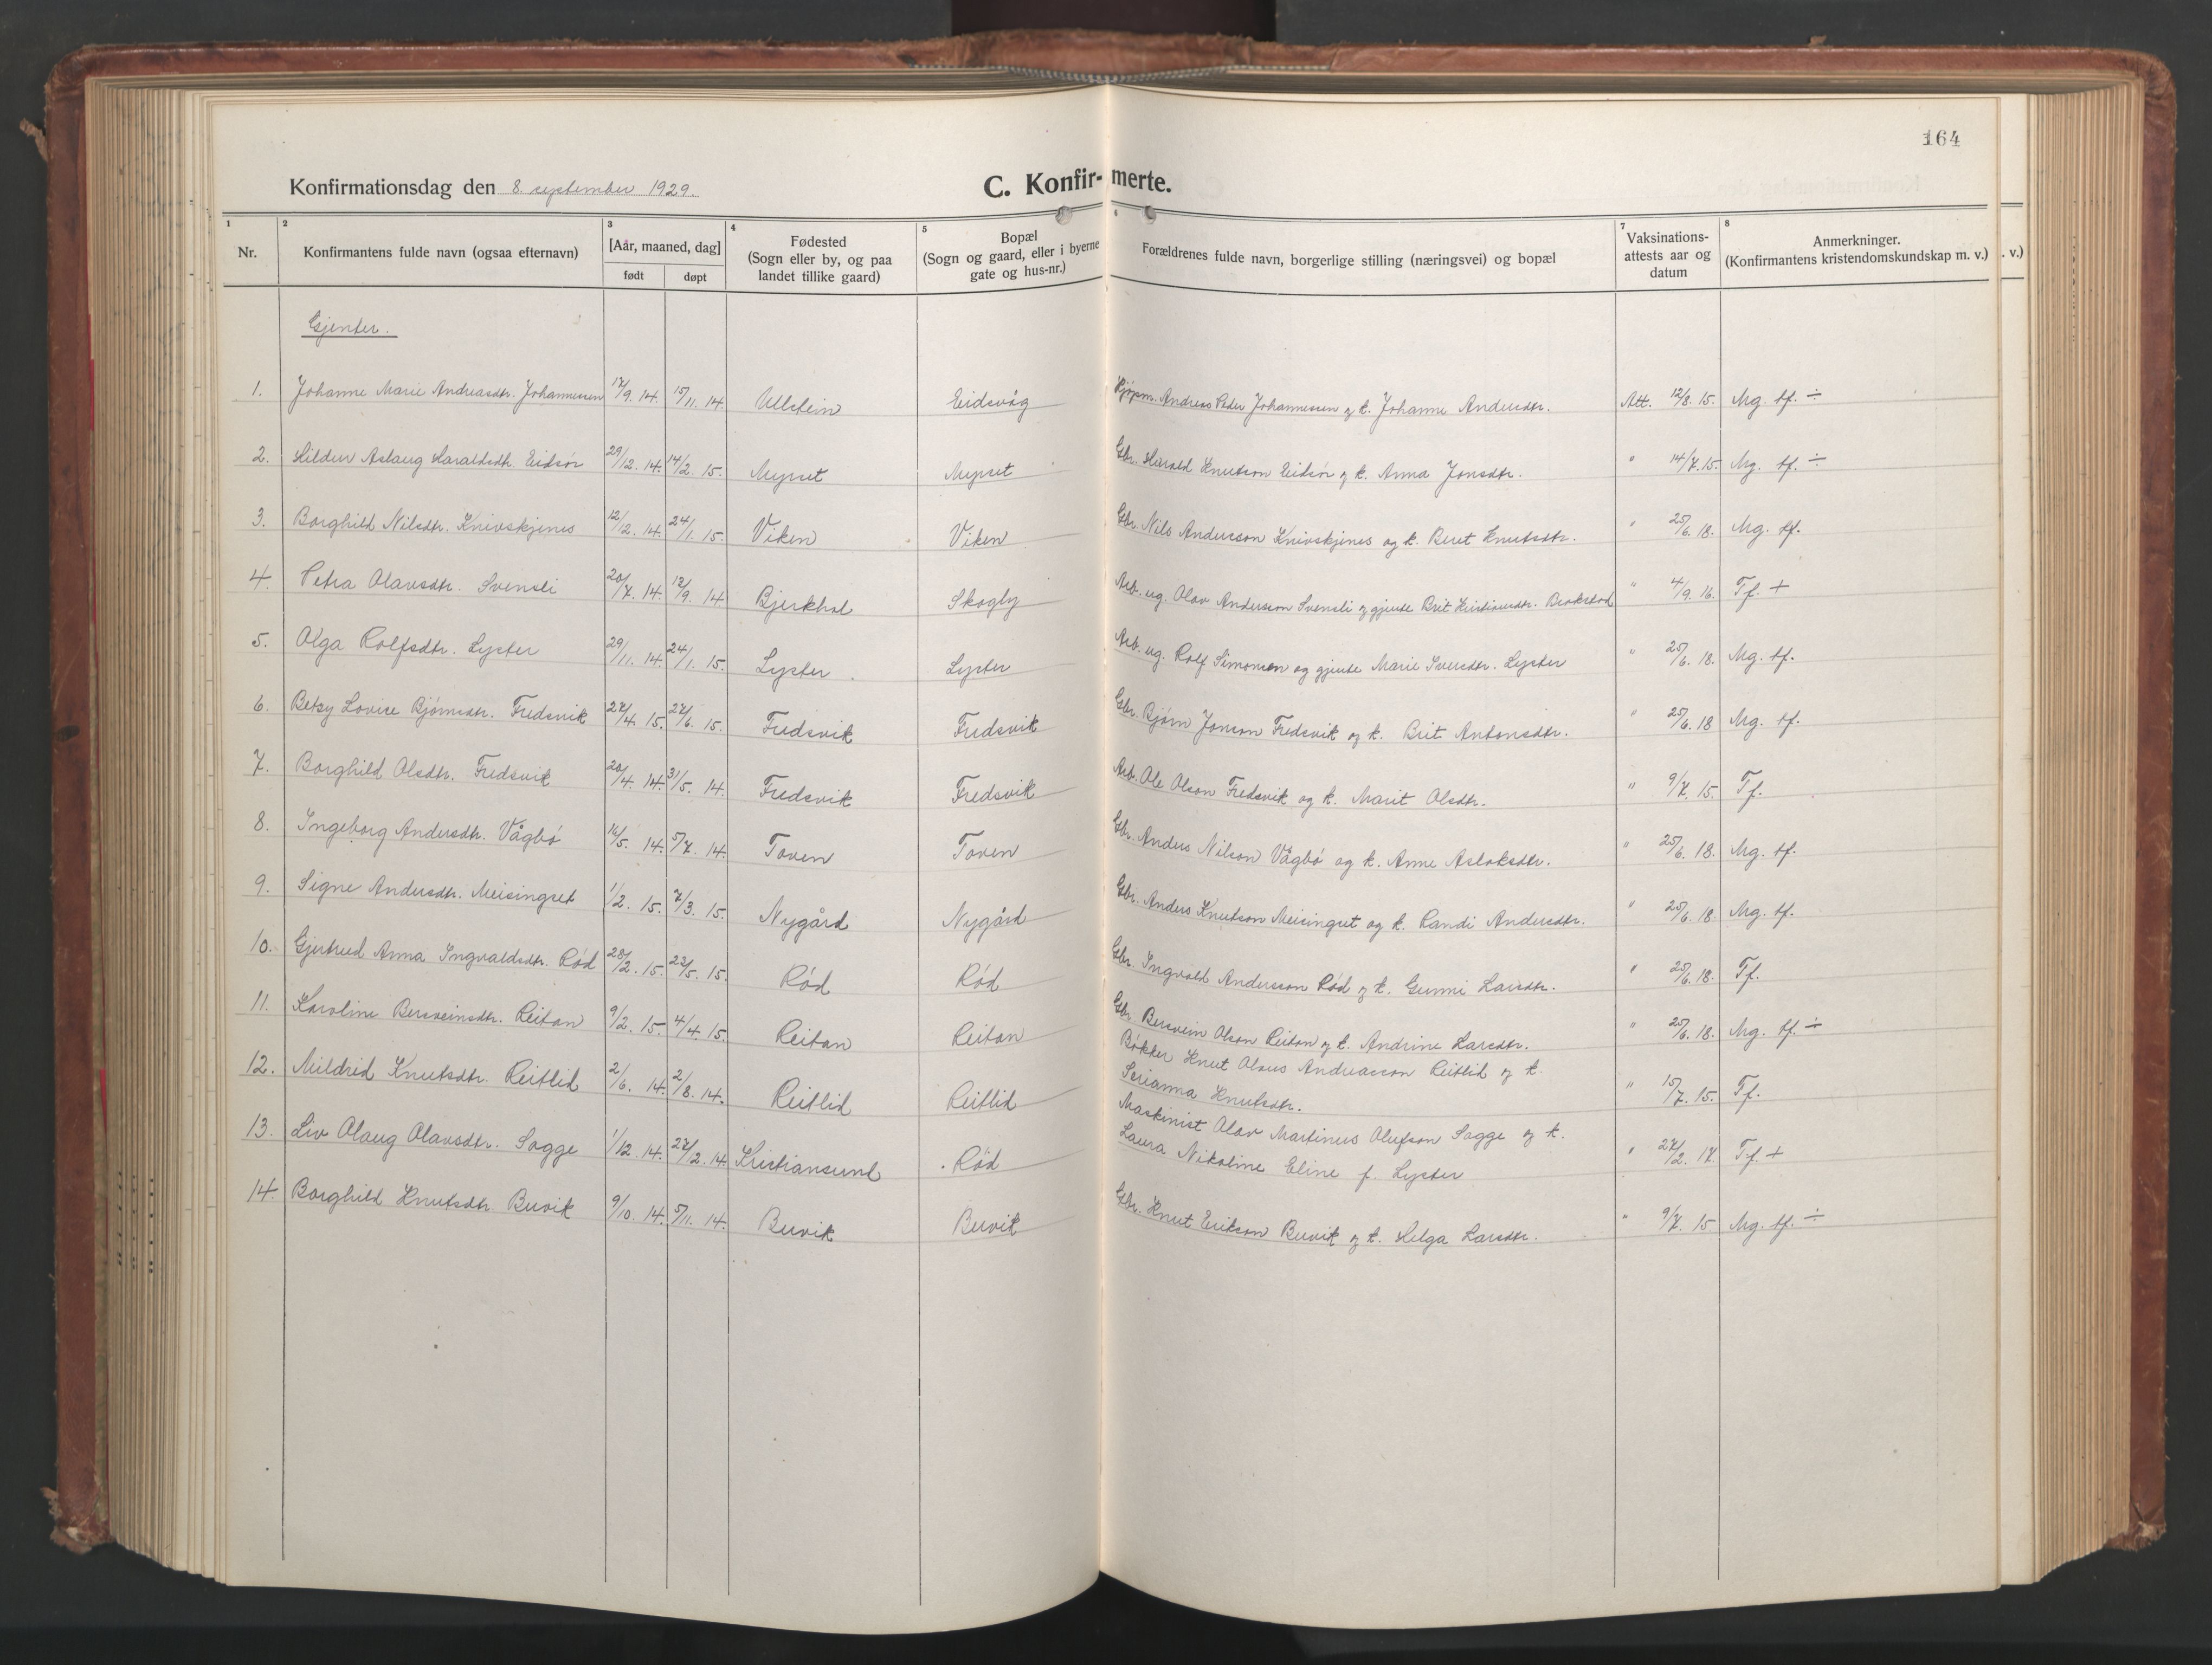 164
Konfirmationsdag den 8. september 1929.
C. Konfirmerte.
1 2 3 4 5 6 7 8
Nr. Konfirmantens fulde navn (ogsaa efternavn) [Aar, maaned, dag] født døpt Fødested (Sogn eller by, og paa landet tillike gaard) Bopæl (Sogn og gaard, eller i byerne gate og hus-nr.) Forældrenes fulde navn, borgerlige stilling (næringsvei) og bopæl Vaksinations-attests aar og datum Anmerkninger. (Konfirmantens kristendomskundskap m. v.) . v.)
Gjenter.
1. Johanne Marie Andreasdtr. Johannessen 17/9. 14. 15/11. 14. Ullstein Eidsvåg Kjøpm. Andreas Peder Johannessen og k. Johanne Andersdtr. Att. 12/8. 15. Mg. tf. ÷
2. Hildur Aslaug Haraldsdtr. Eidsør 29/12. 14. 14/2. 15. Myrset Myrset Gbr. Harald Knutson Eidsør og k. Anna Jonsdtr. " 14/7. 15. Mg. tf. ÷
3. Borghild Nilsdtr. Knivskjenes 12/12. 14. 24/1. 15. Viken Viken Gbr. Nils Andersson Knivskjenes og k. Beret Knutsdtr. " 25/6. 18. Mg. tf.
4. Petra Olavsdtr. Svensli 20/7. 14. 12/9. 14 Bjerkhol Skogly Arb. ug. Olav Andersson Svensli og gjente Brit Kristiansdtr. Brakstad " 4/9. 16. Tf. +
5. Olga Rolfsdtr. Lyster 29/11. 14. 24/1. 15. Lyster . Lyster Arb. ug. Rolf Simonsen og gjente Marie Iversdtr. Lyster " 25/6. 18. Mg. tf.
6. Betsy Lovise Bjørnsdtr. Fredsvik 27/4. 15. 27/6. 15. Fredsvik Fredsvik Gbr. Bjørn Jonson Fredsvik og k. Brit Antonsdtr. " 25/6. 18 Mg. tf.
7. Borghild Olsdtr. Fredsvik 20/4. 14. 31/5. 14. Fredsvik Fredsvik Arb. Ole Olson Fredsvik og k. Marit Olsdtr. " 9/7. 15. Tf.
8. Ingeborg Andersdtr. Vågbø 16/5. 14. 5/7. 14. Toven Toven Gbr. Anders Nilson Vågbø og k. Anne Aslaksdtr. " 25/6. 18. Mg. tf.
9. Signe Andersdtr. Meisingset 1/2. 15. 7/3. 15. Nygård Nygård Gbr. Anders Knutson Meisingset og k. Randi Andersdtr. " 25/6. 18. Mg. tf.
10. Gjertrud Anna Ingvaldsdtr. Rød 28/2. 15. 23/5. 15. Rød Rød Gbr. Ingvald Andersson Rød og k. Gunni Larsdtr. " 25/6. 18. Tf.
11. Karoline Bersveinsdtr. Reitan 9/2. 15. 4/4. 15. Reitan Reitan Gbr. Bersvein Olson Reitan og k. Andrine Larsdtr. " 25/6. 18. Mg. tf. ÷
12. Mildrid Knutsdtr. Reitlid 2/6. 14. 2/8. 14. Reitlid Reitlid Bøkker Knut Olaus Andreasson Reitlid og k.
Serianna Knutsdtr. " 15/7. 15. Tf.
13. Liv Olaug Olavsdtr. Sogge 1/12. 14. 27/12. 14. Kristiansund Rød Maskinist Olav Martinus Olufson Sogge og k.
Laura Nikoline Eline f. Lyster " 27/2. 17. Tf. +
14. Borghild Knutsdtr. Buvik 9/10. 14. 5/11. 14. Buvik Buvik Gbr. Knut Erikson Buvik og k. Helga Larsdtr. " 9/7. 15 Mg. tf. ÷